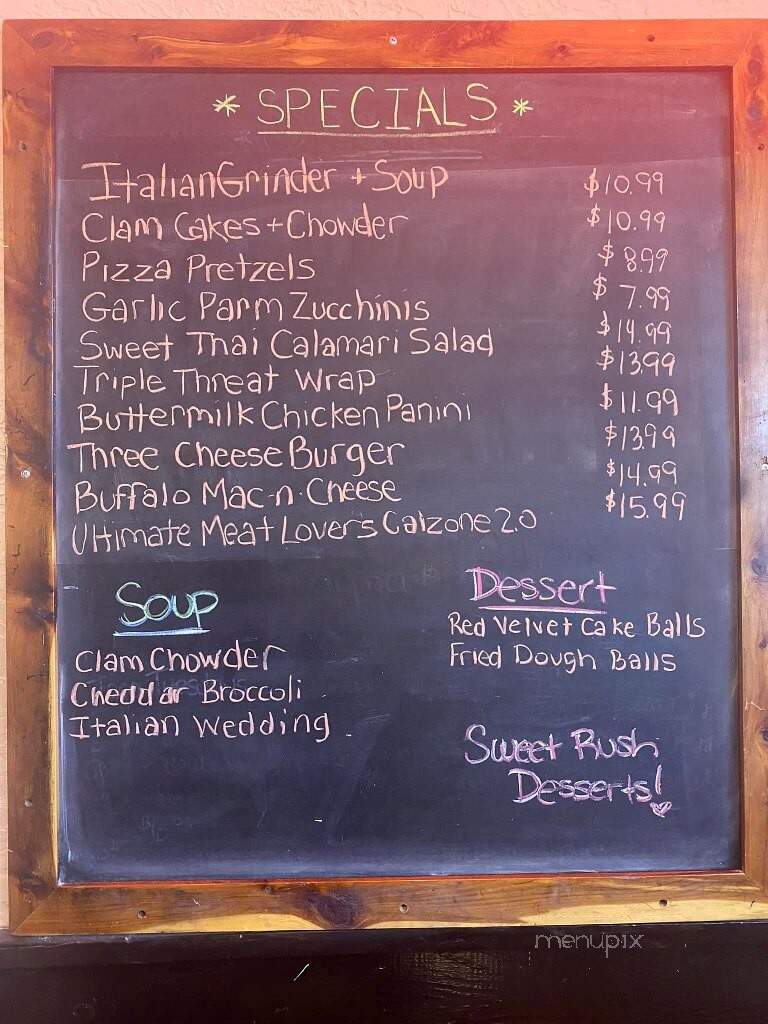 * SPECIALS *
Italian Grinder + Soup $10.99
Clam Cakes + Chowder $10.99
Pizza Pretzels $8.99
Garlic Parm Zucchinis $7.99
Sweet Thai Calamari Salad $14.99
Triple Threat Wrap $13.99
Buttermilk Chicken Panini $11.99
Three Cheese Burger $13.99
Buffalo Mac-n-Cheese $14.99
Ultimate Meat Lovers Calzone 2.0 $15.99
Soup
Clam Chowder
Cheddar Broccoli
Italian Wedding
Dessert
Red Velvet Cake Balls
Fried Dough Balls
Sweet Rush
Desserts!
menupix